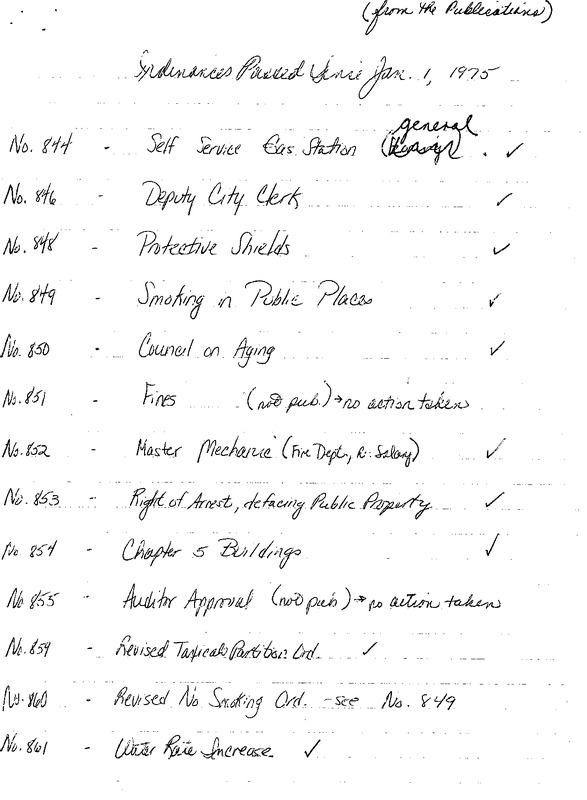 (from the Publications)
Ordinances Passed Since Jan. 1, 1975
general
No. 844 - Self Service Gas Station ( ) . ✓
No. 846 - Deputy City Clerk ✓
No. 848 - Protective Shields ✓
No. 849 - Smoking in Public Places ✓
No. 850 - Council on Aging ✓
No. 851 - Fines (not pub.) → no action taken
No. 852 - Master Mechanic (Fire Dept., R: Salary) ✓
No. 853 - Right of Arrest, defacing Public Property ✓
No 854 - Chapter 5 Buildings ✓
No 855 - Auditor Approval (not pub) → no action taken
No. 859 - Revised Taxicab Partition Ord. ✓
No. 860 - Revised No Smoking Ord. - see No. 849
No. 861 - Water Rate Increase ✓